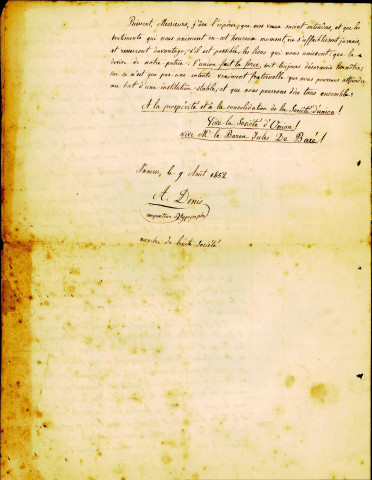 Puissent, Messieurs, j'ose l'espérer, que mes vœux soient entendus, et que les
sentiments qui nous animent en cet heureux moment, ne s'affaiblissent jamais,
et resserrent davantage, s'il est possible, les liens qui nous unissent; que la
devise de notre patrie: l'union fait la force, soit toujours désormais la nôtre;
car ce n'est que par une entente vraiment fraternelle que nous pourrons atteindre
au but d'une institution stable, et que nous pourrons dire tous ensemble:
A la prospérité et à la consolidation de la Société d'union!
Vive la Société d'Union!
vive Mr le Baron Jules De Baré!
Namur, le 9 Août 1858
A. Denis
compositeur Typographe
membre de la dite Société